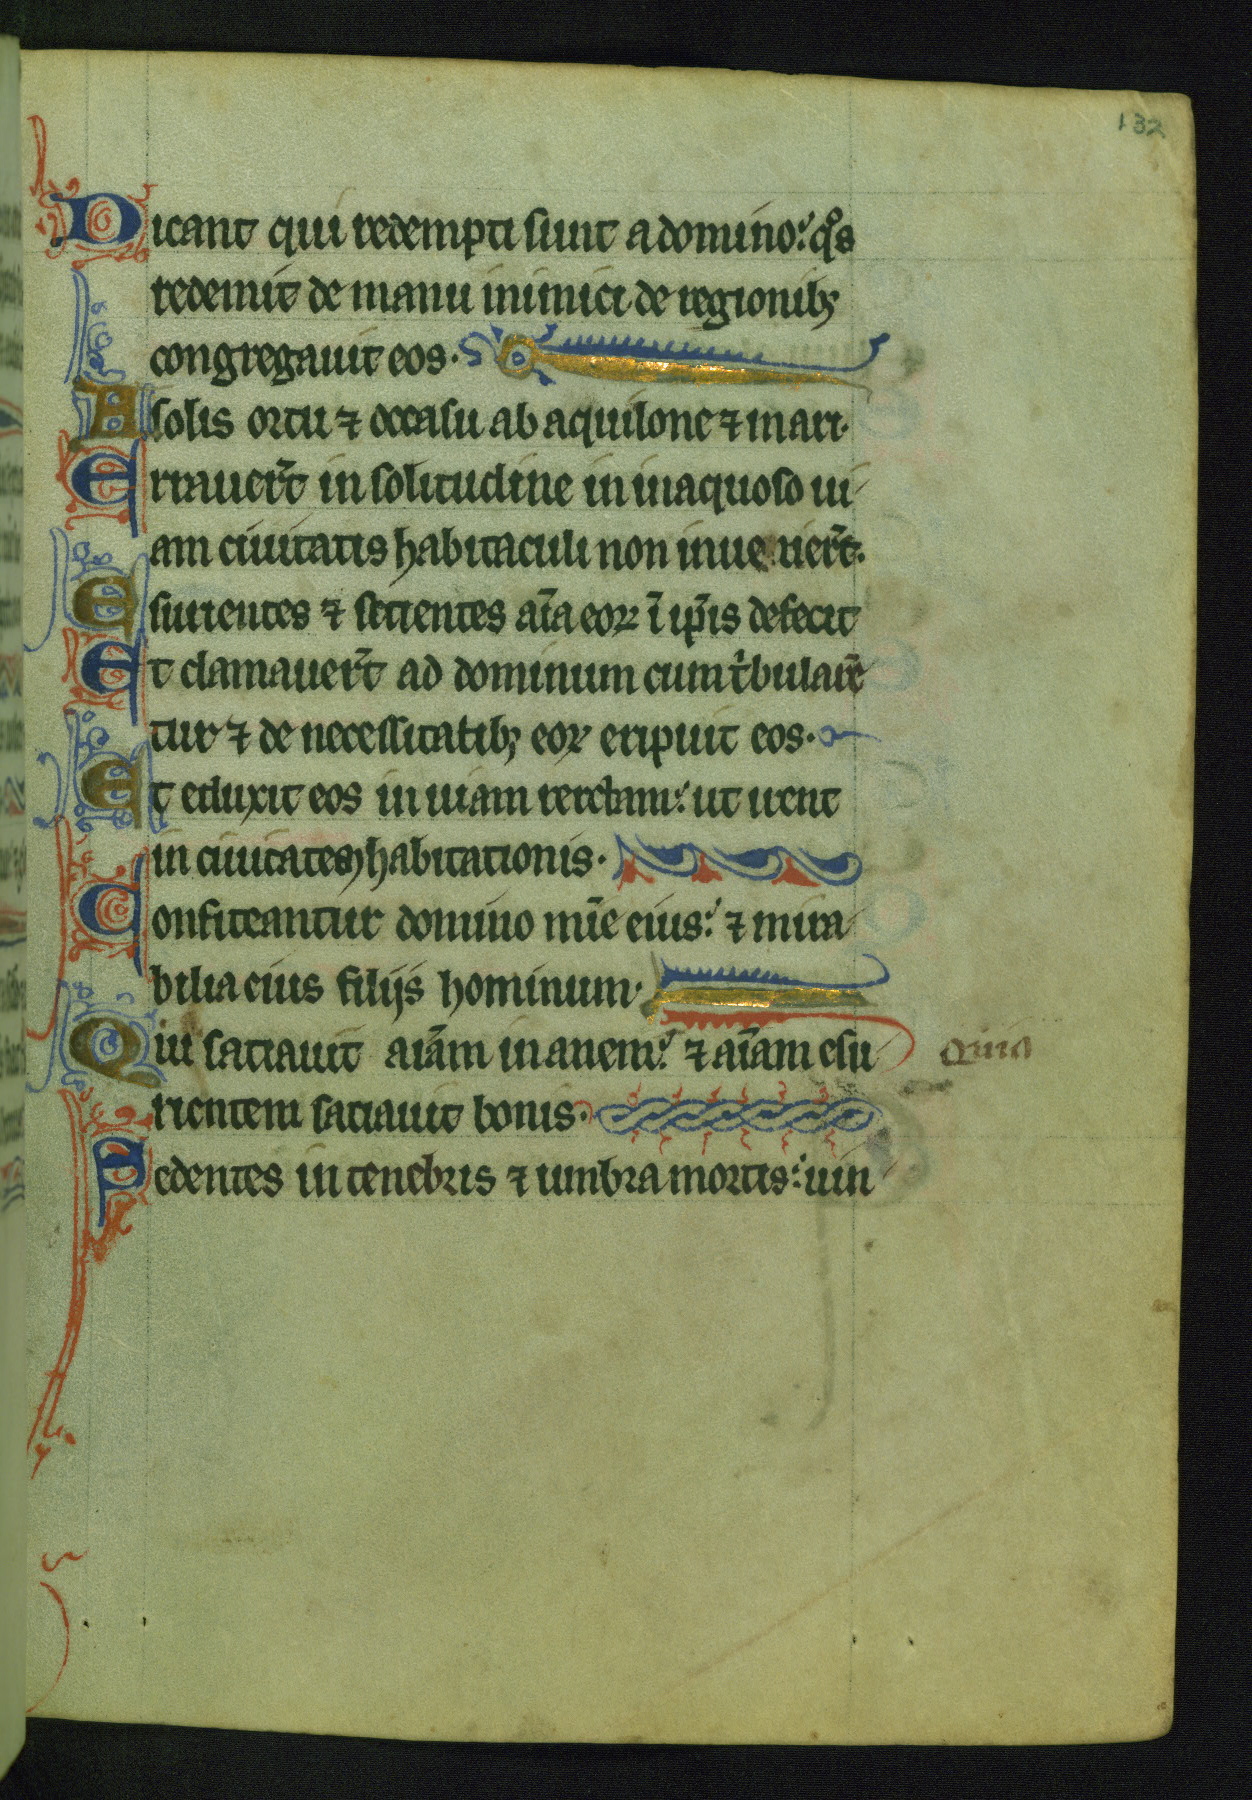 132
Dicant qui redempti sunt a domino: qͦs
redemit de manu inimici de regionibꝫ
congregauit eos.
A solis ortu ⁊ occasu ab aquilone ⁊ mari.
Errauer̄t in solitudine in inaquoso ui
am ciuitatis habitaculi non inue nier̄t.
Esurientes ⁊ sitientes aīa eoꝝ ī ip̄is defecit
Et clamauer̄t ad dominum cum tͥbularē
tur ⁊ de necessitatibꝫ eoꝝ eripuit eos.
Et eduxit eos in uiam rectam: ut irent
in ciuitatem habitationis.
Confiteantur domino mīe eius: ⁊ mira
bilia eius filijs hominum.
Qui satiauit aīam inanem: ⁊ aīam esu
Quia
rientem satiauit bonis.
Sedentes in tenebris ⁊ umbra mortis: uin